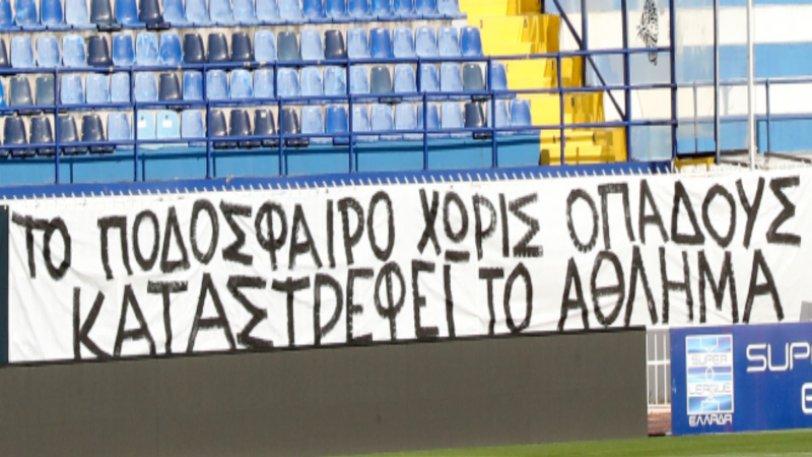 ΤΟ ΠΟΔΟΣΦΑΙΡΟ ΧΩΡΙΣ ΟΠΑΔΟΥΣ
ΚΑΤΑΣΤΡΕΦΕΙ ΤΟ ΑΘΛΗΜΑ
SUPER
LEAGUE
ΕΛΛΑΔΑ
SUP